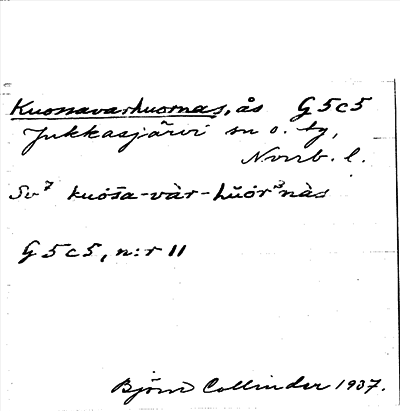 Kuossavarhuornas, ås G5c5
Jukkasjärvi sn o. tg,
Norrb. l.
Sv⁷ kuosa-vàr-hŭórᵊnàs
G5c5, n:r 11
Björn Collinder 1937.